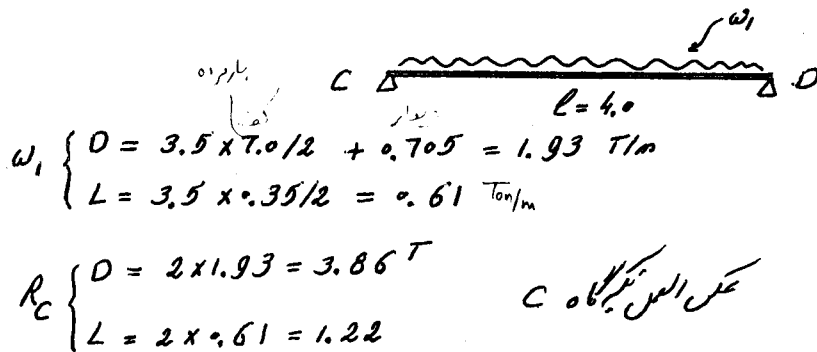 ω₁
C D
l = 4.0
بار مرده
کف دیوار
ω₁ { D = 3.5 × 7.0/2 + 0.705 = 1.93 T/m
L = 3.5 × 0.35/2 = 0.61 Ton/m
R_C { D = 2 × 1.93 = 3.86 T
L = 2 × 0.61 = 1.22
عکس العمل تکیه گاه C